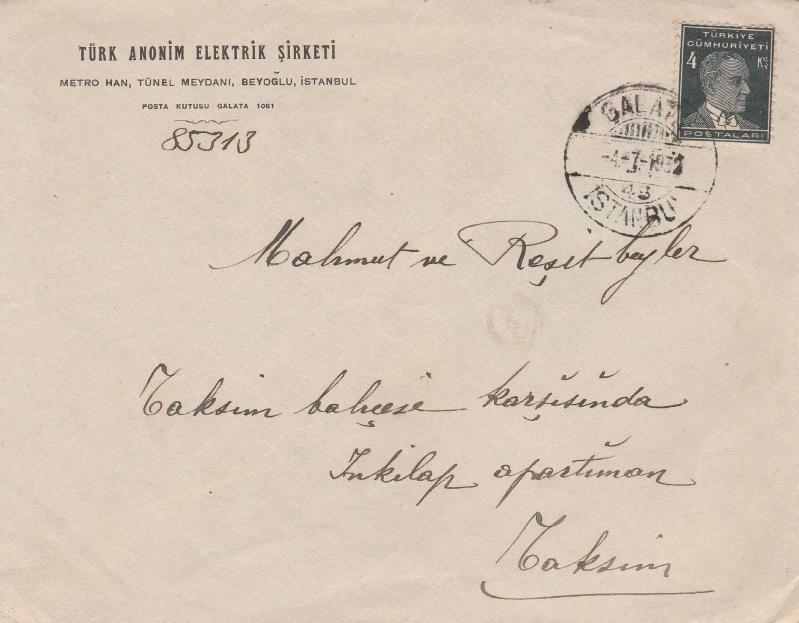 TÜRK ANONİM ELEKTRİK ŞİRKETİ
METRO HAN, TÜNEL MEYDANI, BEYOĞLU, İSTANBUL
POSTA KUTUSU GALATA 1061
85313
TÜRKİYE
CÜMHURİYETİ
4 KŞ
POSTALARI
GALATA
-4-7-193
43
İSTANBUL
Mahmut ve Reşit beyler
Taksim bahçesi karşısında
Inkilap apartıman
Taksim